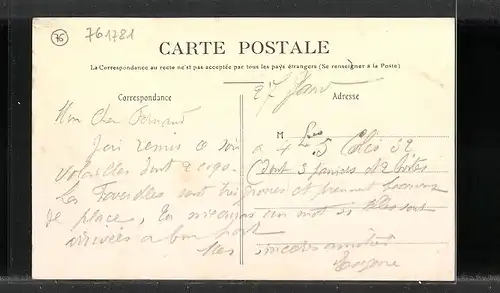 76
761781
CARTE POSTALE
La Correspondance au recto n'est pas acceptée par tous les pays étrangers (Se renseigner à la Poste)
Correspondance
Adresse
27 Janv
Mon Cher Fernand
J'ai remis ce soir
M
à 4 5 Colis 32
volailles dont 2 coqs.
(dont 3 paniers et 2 boîtes
Les sont très grosses et prennent beaucoup
de place, un mot si elles sont
arrivées à bon port
Mes sincères amitiés
Eugène